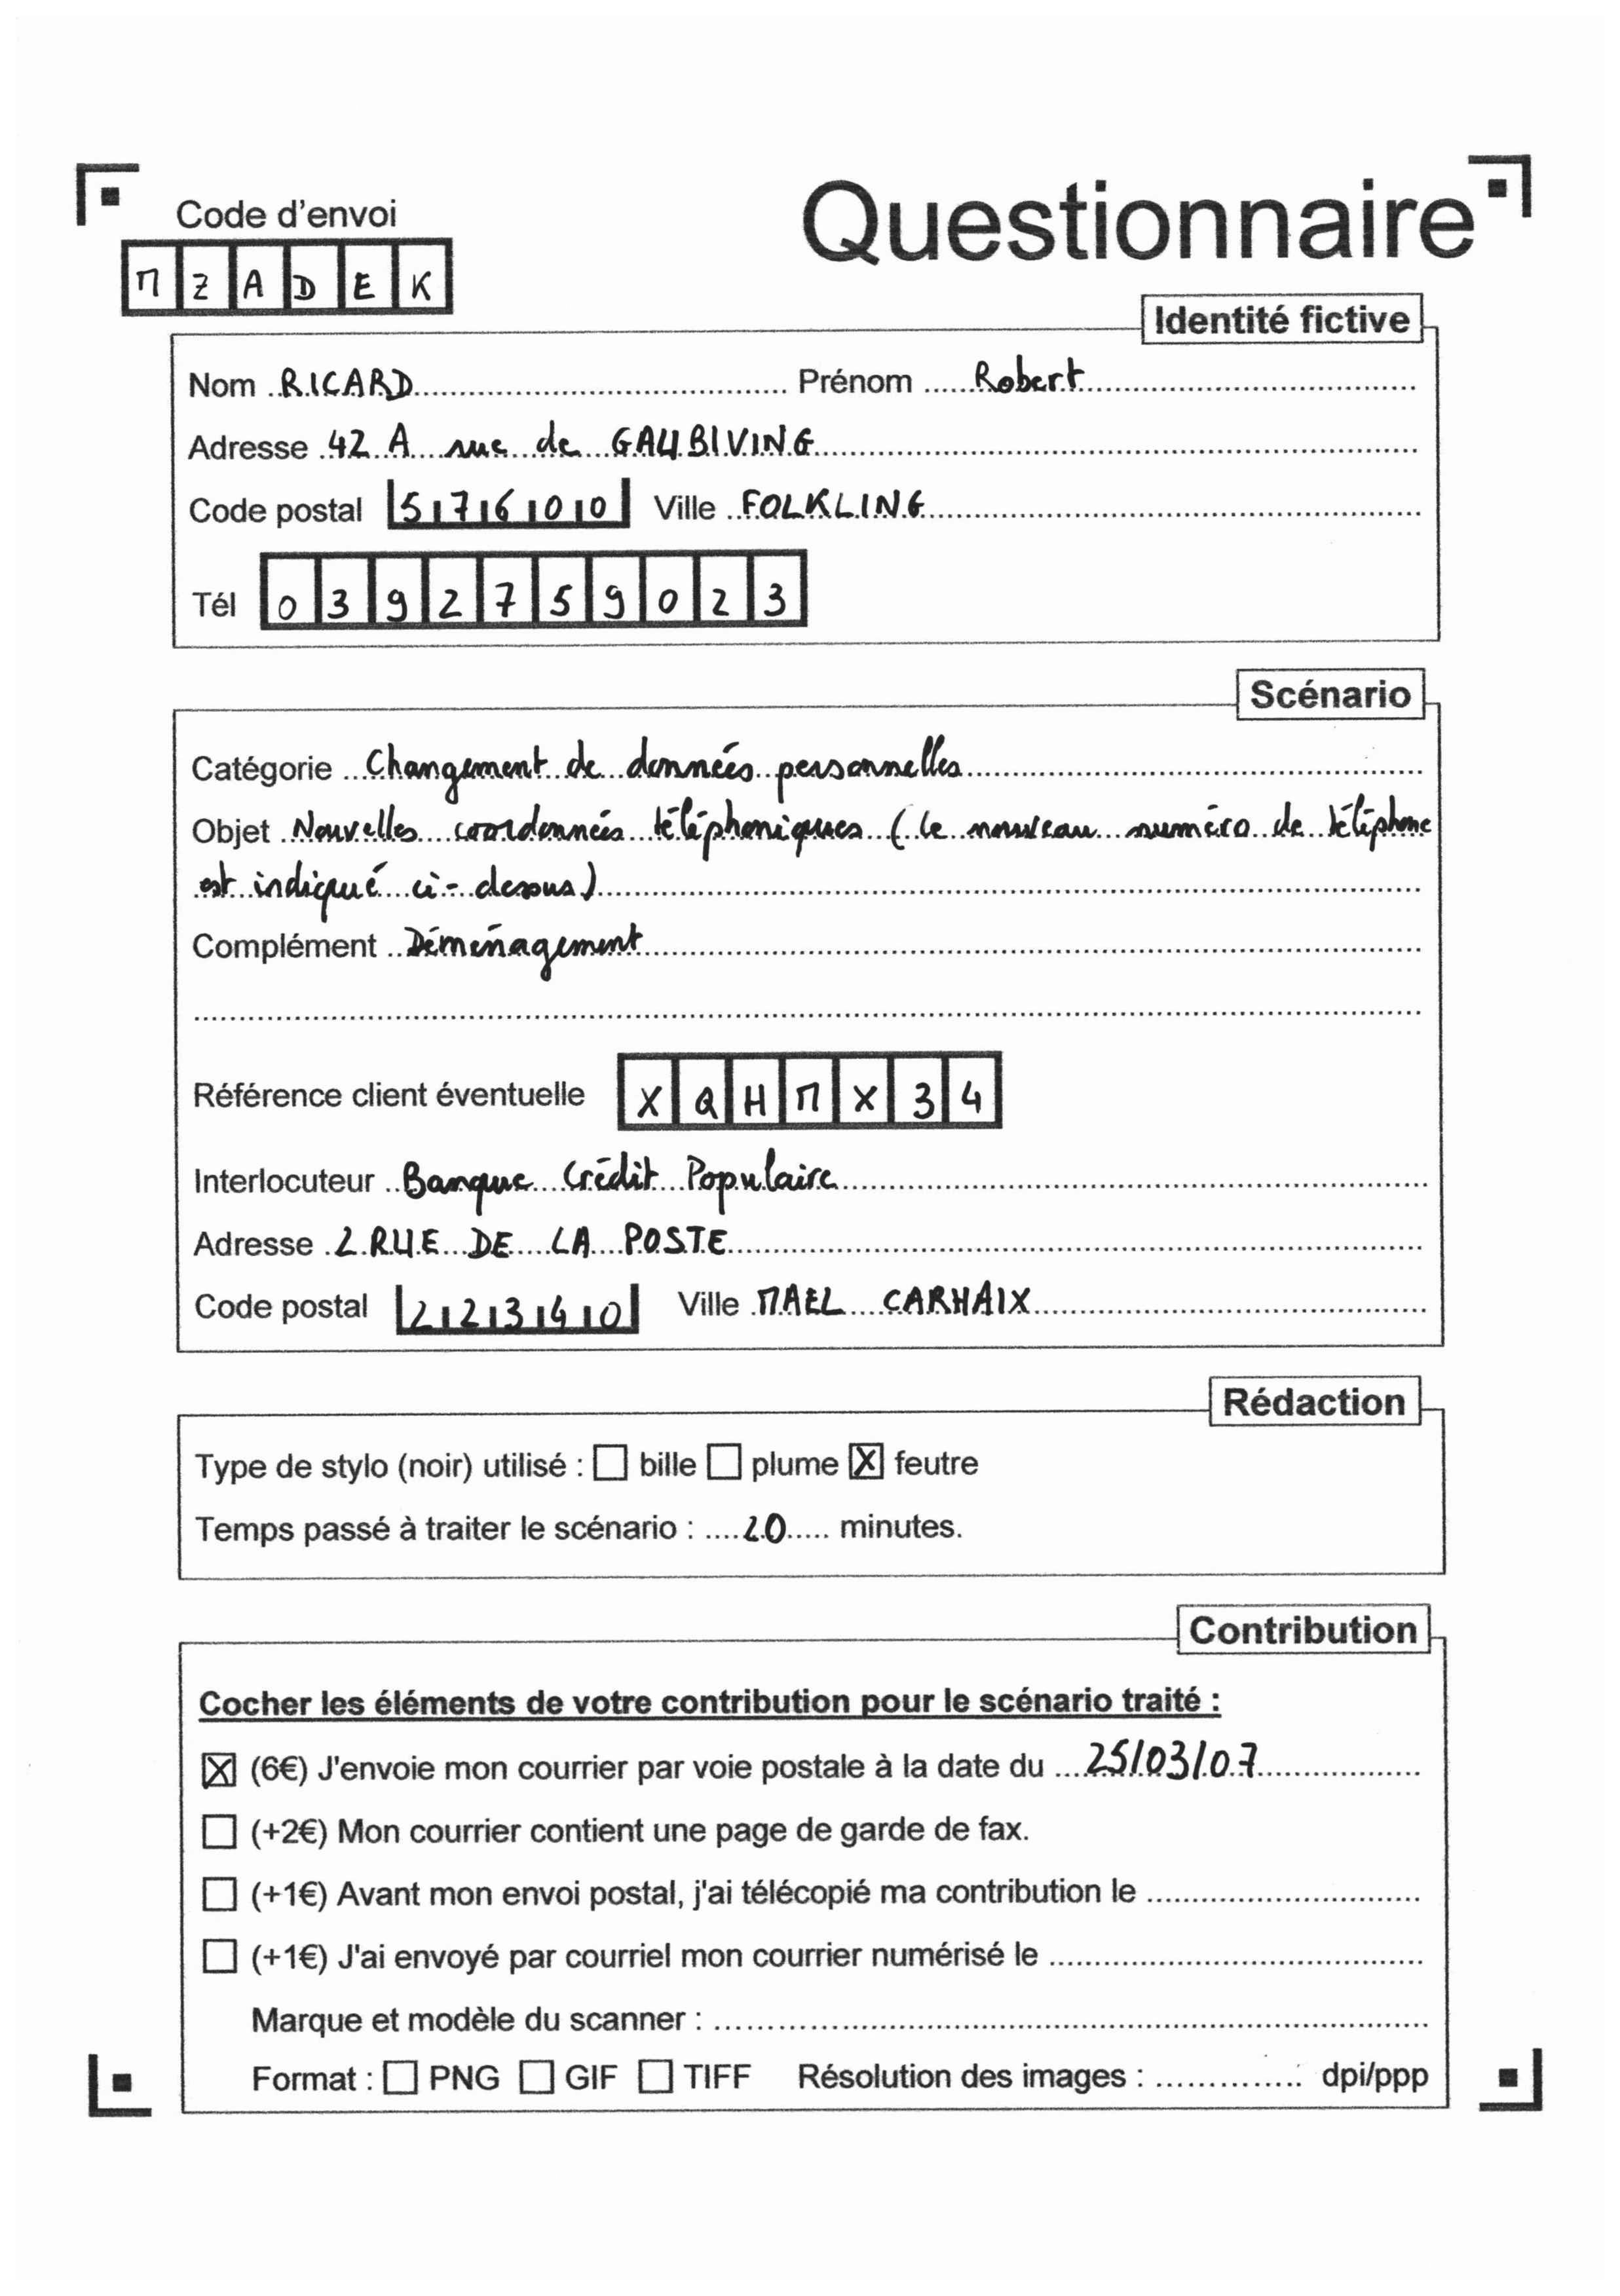 Code d'envoi
Questionnaire
MZADEK
Identité fictive
Nom RICARD Prénom Robert
Adresse 42 A rue de GAUBIVING
Code postal 57600 Ville FOLKLING
Tél 0392759023
Scénario
Catégorie Changement de données personnelles
Objet Nouvelles coordonnées téléphoniques (le nouveau numéro de téléphone
est indiqué ci-dessus)
Complément Déménagement
Référence client éventuelle XQHMX34
Interlocuteur Banque Crédit Populaire
Adresse 2 RUE DE LA POSTE
Code postal 22340 Ville MAEL CARHAIX
Rédaction
Type de stylo (noir) utilisé : ☐ bille ☐ plume ☒ feutre
Temps passé à traiter le scénario : 20 minutes.
Contribution
Cocher les éléments de votre contribution pour le scénario traité :
☒ (6€) J'envoie mon courrier par voie postale à la date du 25/03/07
☐ (+2€) Mon courrier contient une page de garde de fax.
☐ (+1€) Avant mon envoi postal, j'ai télécopié ma contribution le
☐ (+1€) J'ai envoyé par courriel mon courrier numérisé le
Marque et modèle du scanner :
Format : ☐ PNG ☐ GIF ☐ TIFF Résolution des images : dpi/ppp